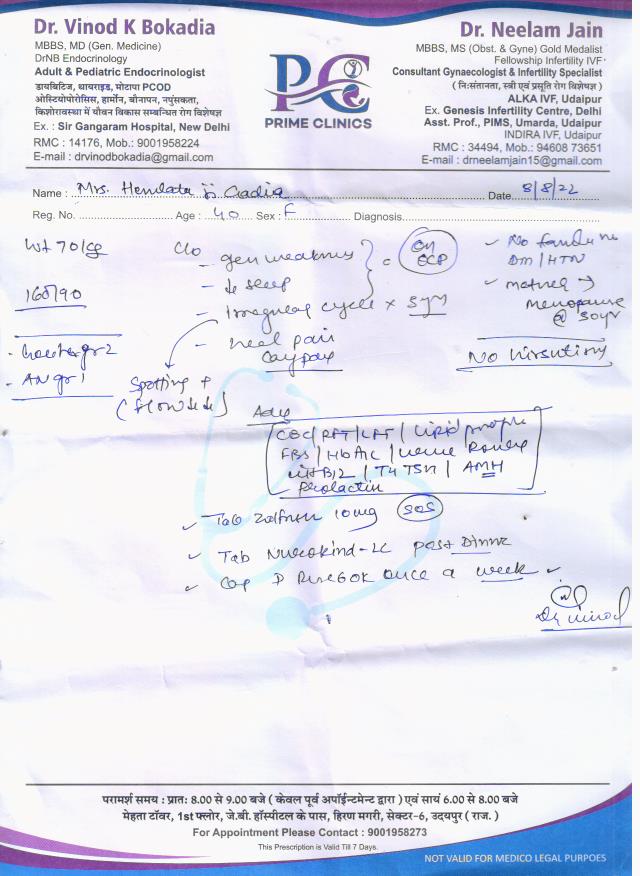 Dr. Vinod K Bokadia
MBBS, MD (Gen. Medicine)
DrNB Endocrinology
Adult & Pediatric Endocrinologist
डायबिटिज, थायराइड, मोटापा PCOD
ओस्टियोपोरोसिस, हार्मोन, बौनापन, नपुंसकता,
किशोरावस्था में यौवन विकास सम्बन्धित रोग विशेषज्ञ
Ex. : Sir Gangaram Hospital, New Delhi
RMC : 14176, Mob.: 9001958224
E-mail : drvinodbokadia@gmail.com
PC
PRIME CLINICS
Dr. Neelam Jain
MBBS, MS (Obst. & Gyne) Gold Medalist
Fellowship Infertility IVF
Consultant Gynaecologist & Infertility Specialist
( नि:संतानता, स्त्री एवं प्रसूति रोग विशेषज्ञ )
ALKA IVF, Udaipur
Ex. Genesis Infertility Centre, Delhi
Asst. Prof., PIMS, Umarda, Udaipur
INDIRA IVF, Udaipur
RMC : 34494, Mob.: 94608 73651
E-mail : drneelamjain15@gmail.com
Name : Mrs. Hemlata Date 8/8/22
Reg. No. Age : 40 Sex : F Diagnosis
Wt 70 kg
160/90
AN gr 1
C/o
gen weakness
sleep
irregular cycle x 5yr
heel pain
On OCP
No
DM/HTN
mother →
menopause
@ 50yr
No hirsutism
Spotting +
(flow ↓↓)
Adv
CBC/RFT/LFT/Lipid profile
FBS/HbA1C/Urine Routine
vit B12/T4 TSH/AMH
Prolactin
Tab 10mg SOS
Tab Nurokind-LC post Dinner
Cap D Rise 60K once a week
Dr Vinod
परामर्श समय : प्रात: 8.00 से 9.00 बजे ( केवल पूर्व अपॉईन्टमेन्ट द्वारा ) एवं सायं 6.00 से 8.00 बजे
मेहता टॉवर, 1st फ्लोर, जे.बी. हॉस्पीटल के पास, हिरण मगरी, सेक्टर-6, उदयपुर ( राज. )
For Appointment Please Contact : 9001958273
This Prescription is Valid Till 7 Days.
NOT VALID FOR MEDICO LEGAL PURPOES